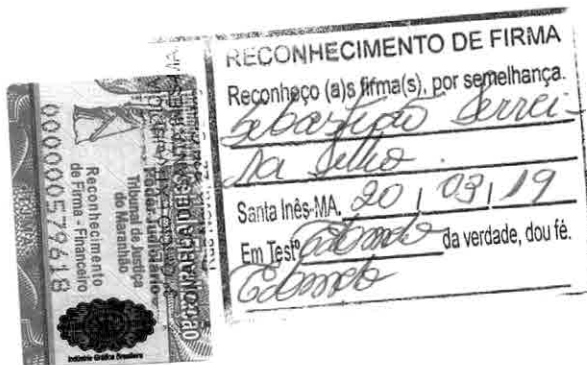 RECONHECIMENTO DE FIRMA
Reconheço (a)s firma(s), por semelhança.
Sebastião Ferrei-
ra Filho.
Santa Inês-MA, 20 / 03 / 19
Em Testº da verdade, dou fé.
Poder Judiciário
Tribunal de Justiça
do Maranhão
Reconhecimento
de Firma - Financeiro
000000579618
COMARCA DE SANTA INÊS-MA
Indústria Gráfica Brasileira